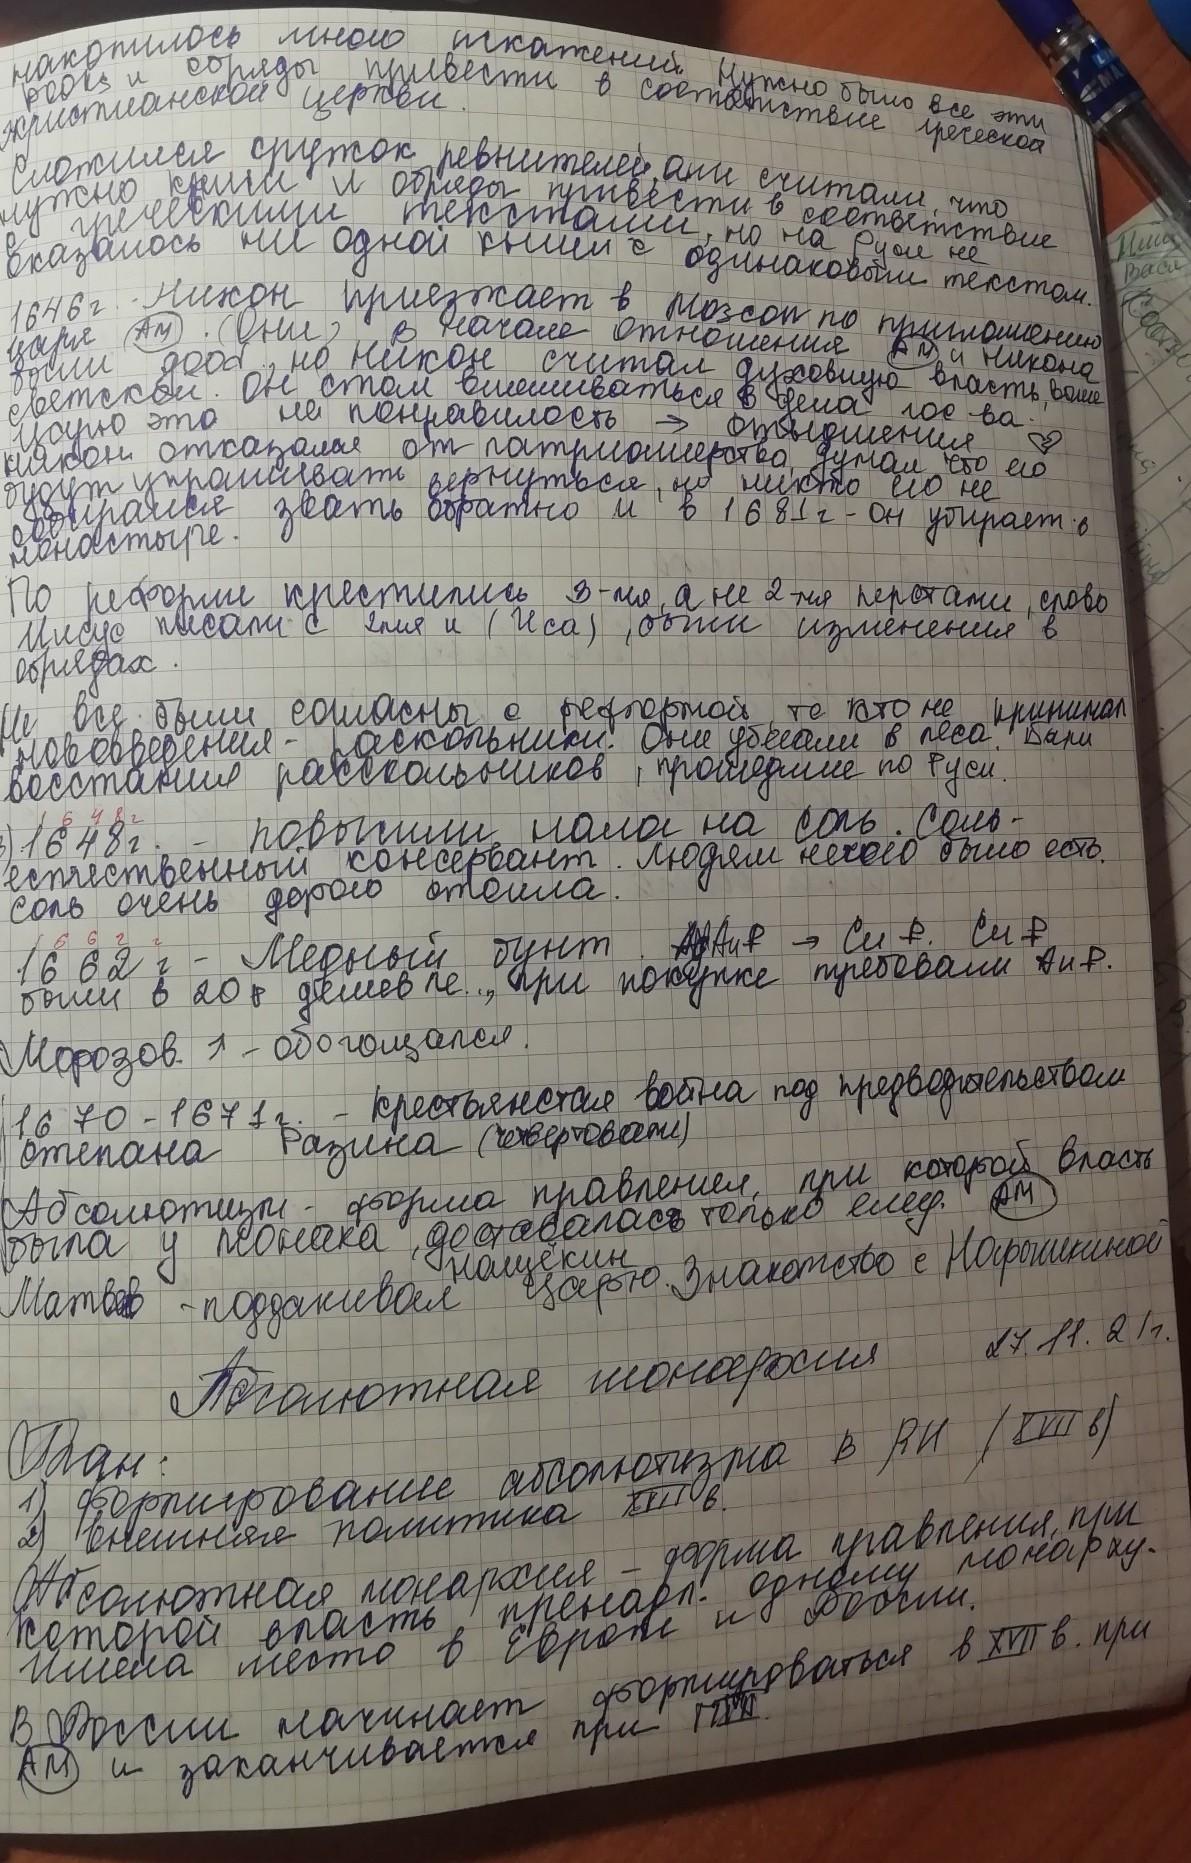 накопилось много искажений. Нужно было все эти
и обряды привести в соответствие греческой
христианской церкви.
Сложился кружок ревнителей, они считали, что
нужно книги и обряды привести в соответствие
с греческими текстами, но на Руси не
оказалось ни одной книги с одинаковым текстом.
1646г. - Никон приезжает в Москву по приглошению
царя АМ. (Они) в начале отношения АМ и Никона
были доб., но Никон считал духовную власть, выше
светской. Он стал вмешиваться в дела гос-ва.
Царю это не понравилость → отношения
Никон отказался от патриошерства, думал что его
будут упрашивать вернуться, но никто его не
собирался звать обратно и в 1681г - он убирает в
монастыре.
По реформи крестились 3-мя, а не 2-мя перстами, слово
Иисус писали с 2мя и (Исa), были изменения в
обрядах.
Не все были согласны с реформой, те кто не принимал
нововведения - раскольники. Они убегали в леса. Были
восстания расскольников, прошедшие по Руси.
1648г
3) 1648г. - повысили налог на соль. Соль -
естественный консервант. Людям нечего было есть.
Соль очень дорого стоила.
1662г
1662г - Медный бунт. Аи₽ → Cu₽. Cu₽
были в 20р дешевле., при покупке требовали Аи₽.
Морозов ↑ - обогощался.
1670-1671г. - крестьянстая война под предводительством
Степана Разина (четвертовали)
Абсолютизм - форма правления, при которой власть
была у монака, доставалась только след. АМ
Нащёкин
Матвеев - поддакивал царю. Знакомство с Нарышкиной
Абсолютная монархия 27.11.21г.
План:
1) Формирование абсолютизма в RU (XVII в)
2) Внешняя политика XVII в.
Абсолютная монархия - форма правления, при
которой власть пренадл. одному монарху.
Имела место в Европе и России.
В России начинает формироваться в XVII в. при
АМ и заканчивается при